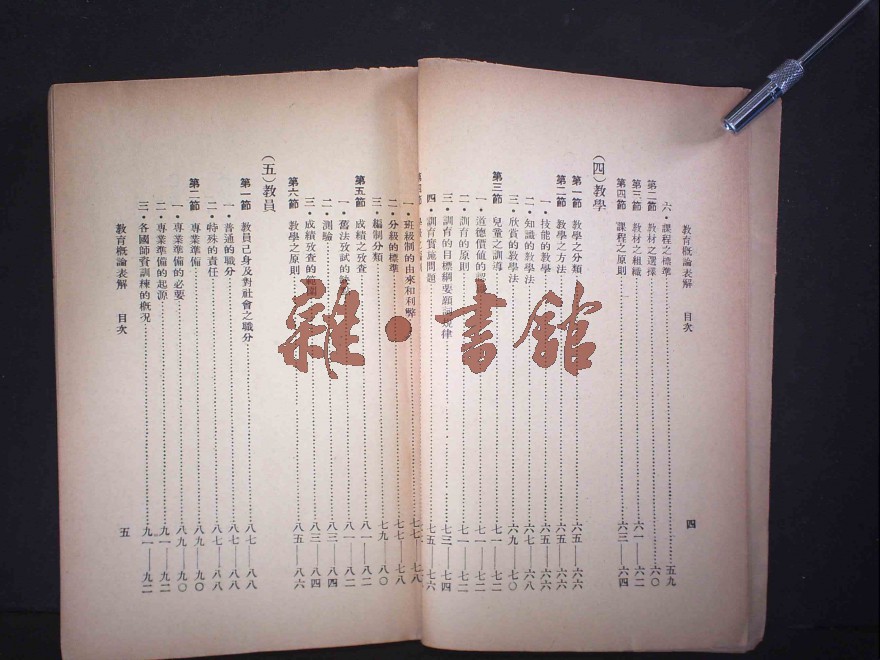 教育概論表解 目次 四
六·課程之標準 五九
第二節 教材之選擇 六〇
第三節 教材之組織 六一——六二
第四節 課程之原則 六三——六四
(四)教學
第一節 教學之分類 六五——六六
第二節 教學之方法 六五——六六
一·技能的教學 六五——六六
二·知識的教學法 六七——六八
三·欣賞的教學法 六九——七〇
第三節 兒童之訓導 七一——七二
一·道德價值的 七一——七二
二·訓育的原則 七一——七二
三·訓育的目標綱要願詞規律 七三——七四
四·訓育實施問題 七五——七六
一·班級制的由來和利弊 七八
二·分級的標準 七七——七八
三·編制分類 七九——八〇
第五節 成績之攷查 八一——八二
一·舊法攷試的 八一——八二
二·測驗 八三——八四
三·成績攷查的範圍 八三——八四
第六節 教學之原則 八五——八六
(五)教員
第一節 教員己身及對社會之職分 八七——八八
一·普通的職分 八七——八八
二·特殊的責任 八七——八八
第二節 專業準備 八九——九〇
一·專業準備的必要 八九——九〇
二·專業準備的起源 九一——九二
三·各國師資訓練的概況 九一——九二
教育概論表解 目次 五
雜·書館